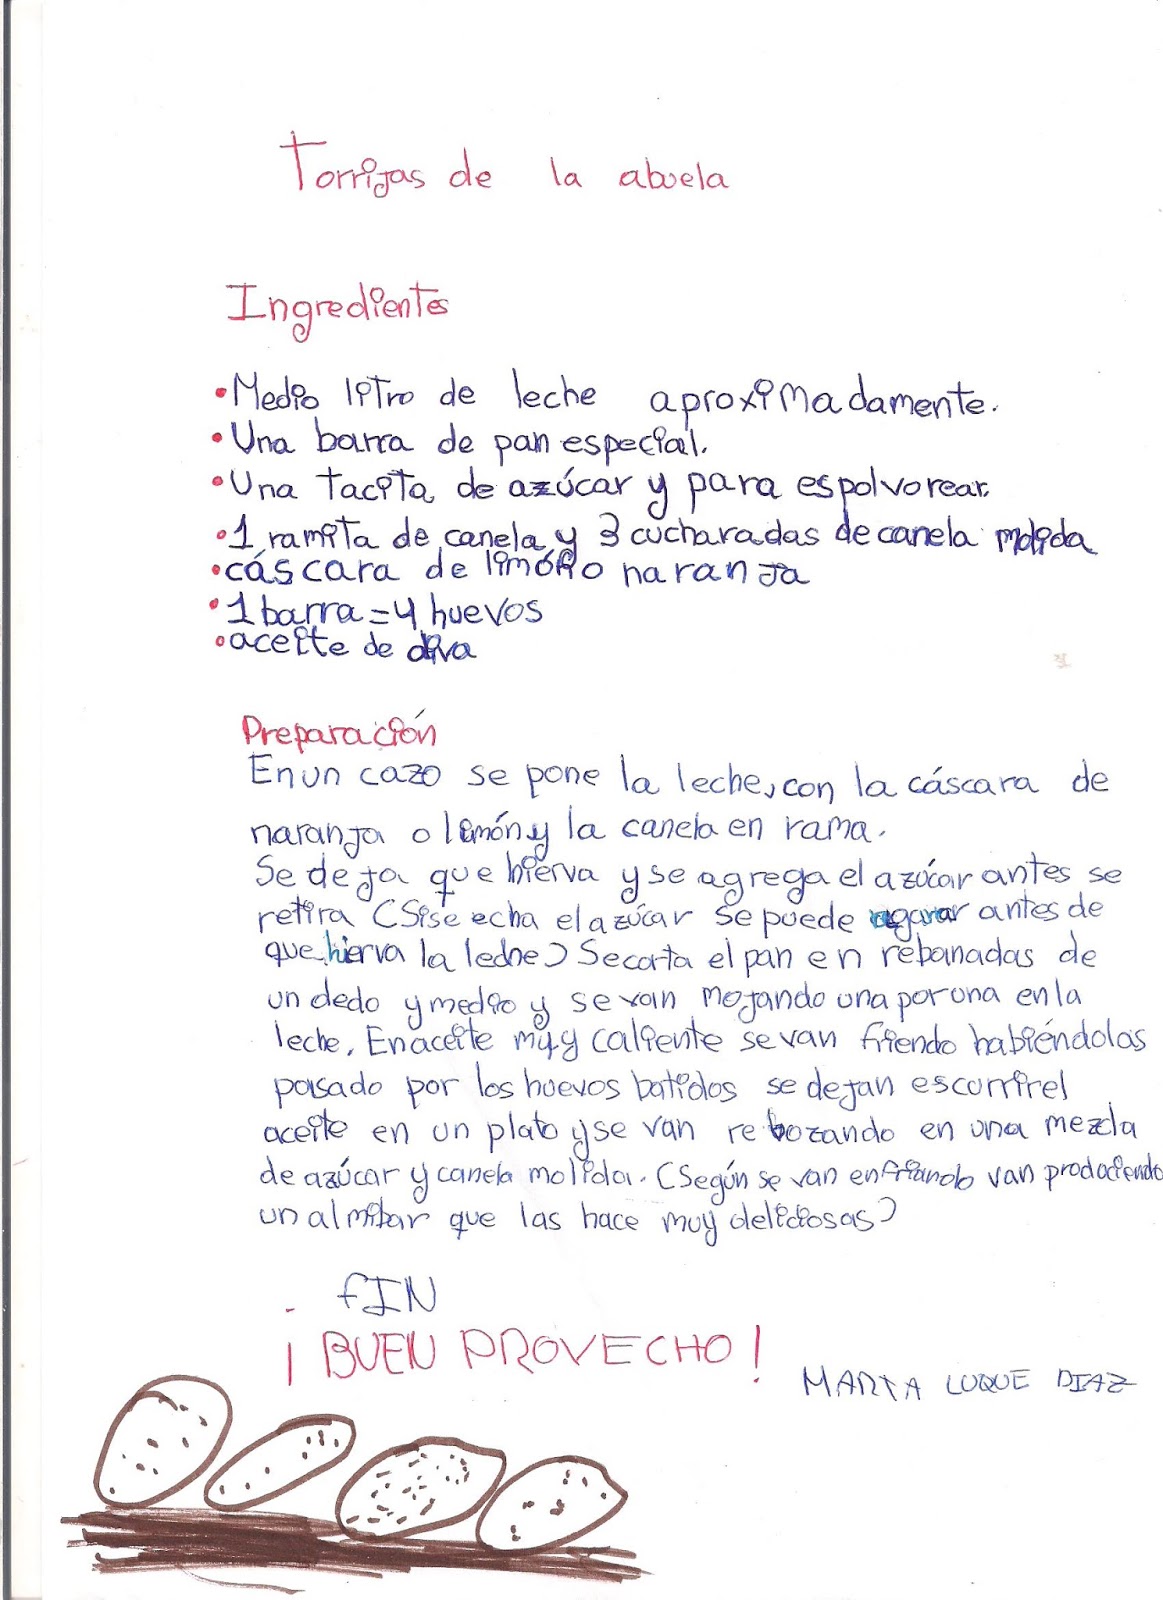 Torrijas de la abuela
Ingredientes
•Medio litro de leche aproximadamente.
•Una barra de pan especial.
•Una tacita de azúcar y para espolvorear.
•1 ramita de canela y 3 cucharadas de canela molida
•cáscara de limón o naranja
•1 barra = 4 huevos
•aceite de oliva
Preparación
En un cazo se pone la leche, con la cáscara de
naranja o limón y la canela en rama.
Se deja que hierva y se agrega el azúcar antes se
retira (Si se echa el azúcar se puede agarar antes de
que hierva la leche) Se corta el pan en rebanadas de
un dedo y medio y se van mojando una por una en la
leche. En aceite muy caliente se van friendo habiéndolas
pasado por los huevos batidos se dejan escurrir el
aceite en un plato y se van rebozando en una mezcla
de azúcar y canela molida. (Según se van enfriando van produciendo
un almibar que las hace muy deliciosas)
FIN
¡BUEN PROVECHO!
MARTA LUQUE DIAZ